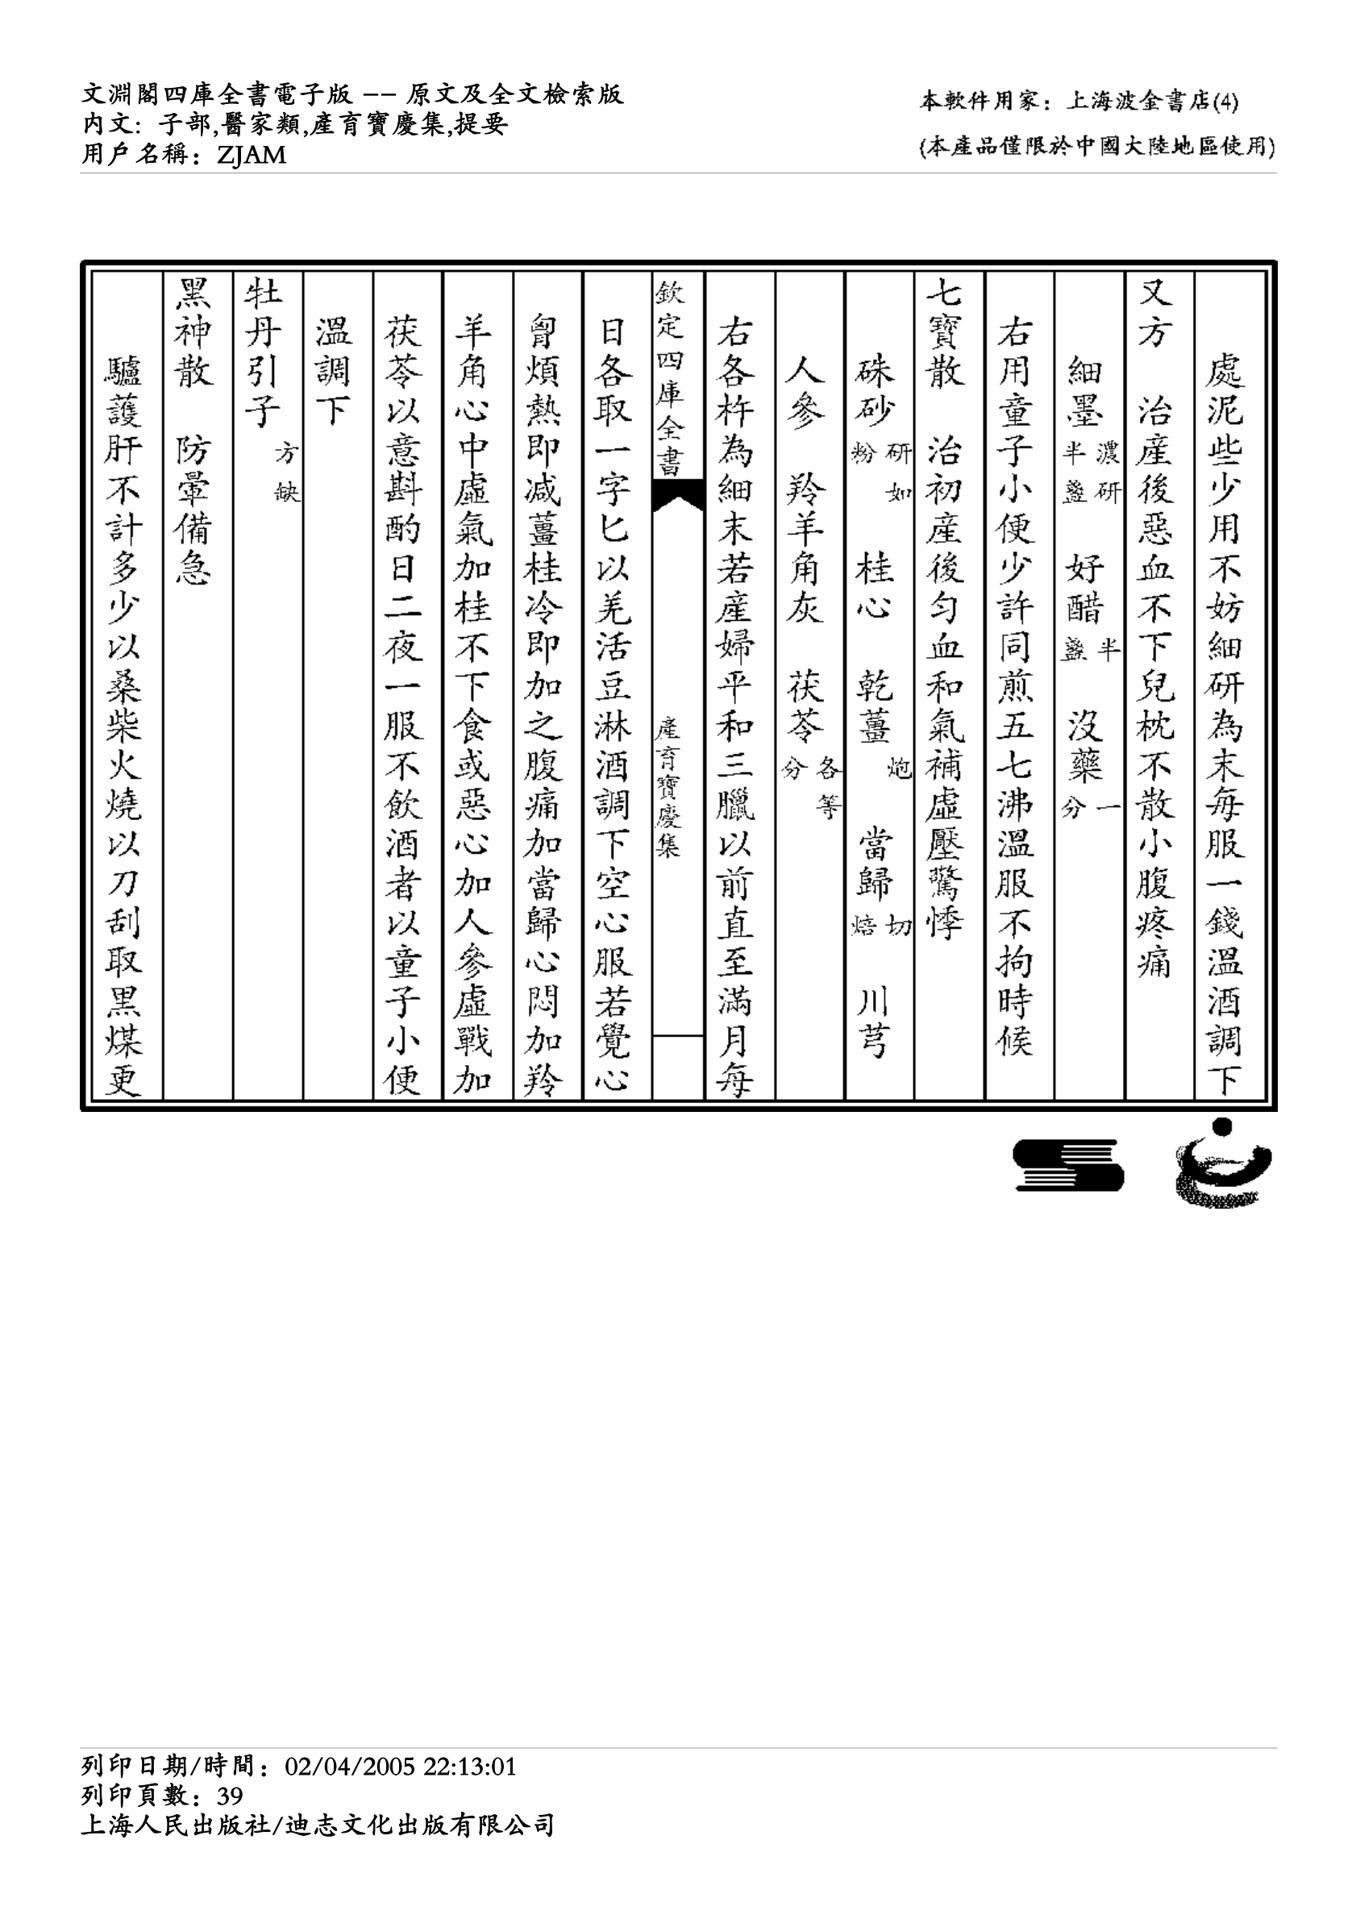 文淵閣四庫全書電子版 –– 原文及全文檢索版
內文：子部,醫家類,產育寶慶集,提要
用戶名稱：ZJAM
本軟件用家：上海波金書店(4)
(本產品僅限於中國大陸地區使用)
處泥些少用不妨細研為末每服一錢溫酒調下
又方　治產後惡血不下兒枕不散小腹疼痛
細墨濃研半盞　好醋半盞　沒藥一分
右用童子小便少許同煎五七沸溫服不拘時候
七寶散　治初產後勻血和氣補虛壓驚悸
硃砂研如粉　桂心　乾薑炮　當歸切焙　川芎
人參　羚羊角灰　茯苓各等分
右各杵為細末若產婦平和三臘以前直至滿月每
欽定四庫全書
產育寶慶集
日各取一字匕以羌活豆淋酒調下空心服若覺心
胷煩熱即減薑桂冷即加之腹痛加當歸心悶加羚
羊角心中虛氣加桂不下食或惡心加人參虛戰加
茯苓以意斟酌日二夜一服不飲酒者以童子小便
溫調下
牡丹引子方缺
黑神散　防暈備急
驢護肝不計多少以桑柴火燒以刀刮取黑煤更
列印日期/時間：02/04/2005 22:13:01
列印頁數：39
上海人民出版社/迪志文化出版有限公司